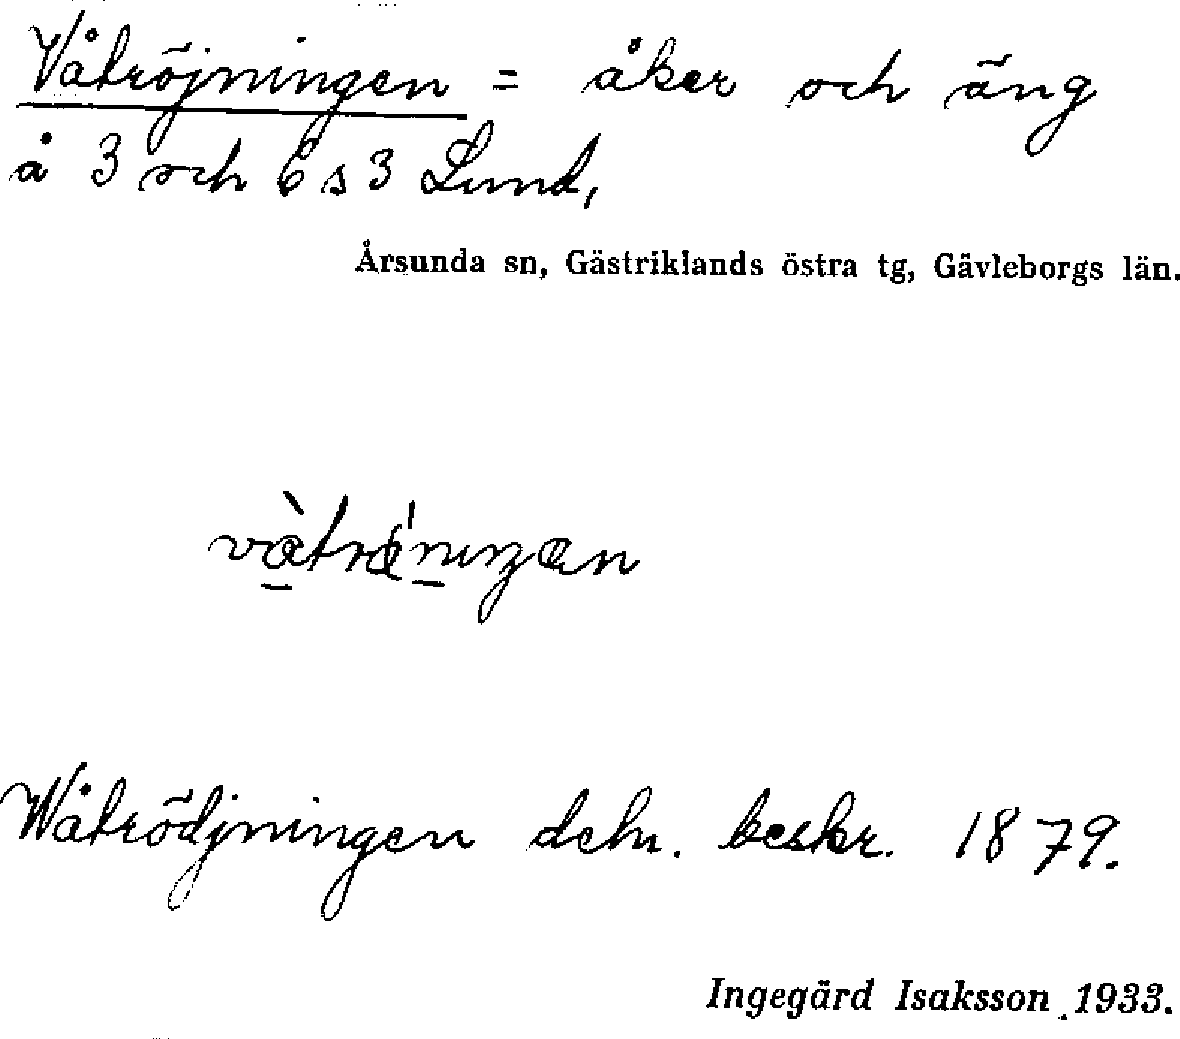 Våtröjningen = åker och äng
å 3 och 6 s 3 Lund,
Årsunda sn, Gästriklands östra tg, Gävleborgs län.
Wåtrödjningen beskr. 1879.
Ingegärd Isaksson 1933.